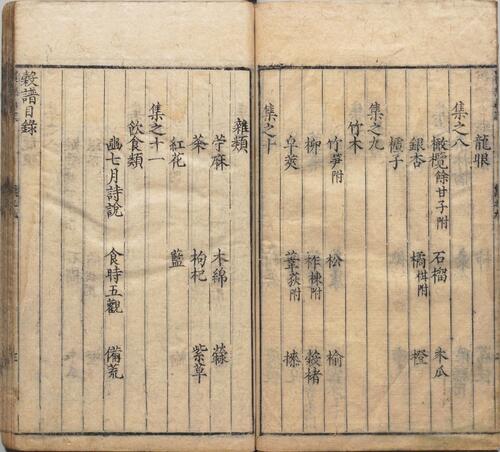 龍眼
集之八
橄欖餘甘子附 石榴 木瓜
銀杏 橘柑附 橙
樝子
集之九
竹木
竹筍附 松 榆
柳 柞楝附 穀楮
皁莢 葦荻附
集之十
雜類
苧麻 木綿
茶 枸杞 紫草
紅花 藍
集之十一
飲食類
豳七月詩說 食時五觀 備荒
穀譜目錄